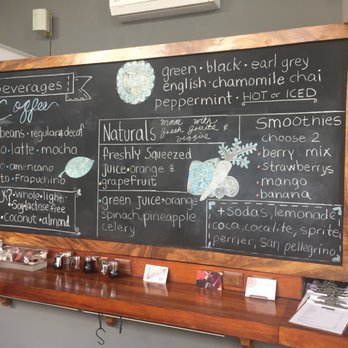 beverages
Coffee
beans · regular & decaf
latte · mocha
americano
Frapuchino
whole · light
Soy · lactose free
coconut · almond
green · black · earl grey
english · chamomile · chai
peppermint · HOT or ICED
Naturals made with fresh fruits & veggies
freshly squeezed
juice · orange &
· grapefruit
green juice · orange
spinach, pineapple
celery
Smoothies
choose 2
· berry mix
· strawberrys
· mango
· banana
+ Sodas, lemonade
coca, cocalite, sprite,
perrier, san pellegrino